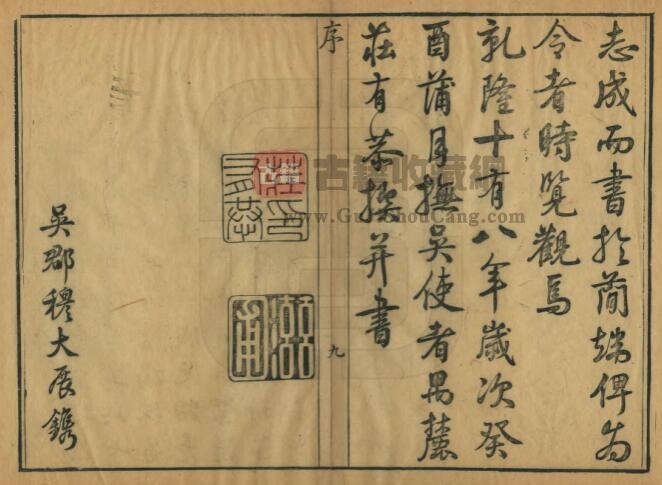 志成而書於簡端俾為
令者時覽觀焉
乾隆十有八年歲次癸
酉蒲月撫吳使者禺麓
莊有恭撰并書
序
九
莊有恭印
吳郡穆大展鐫
古籍收藏網
www.GujiShouCang.com
古籍